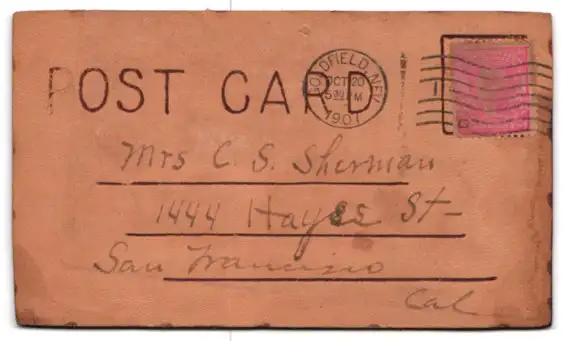 POST CARD
GOLDFIELD, NEV.
OCT 20
5 PM
1907
Mrs C. S. Sherman
1444 Hayes St-
San Francisco
Cal